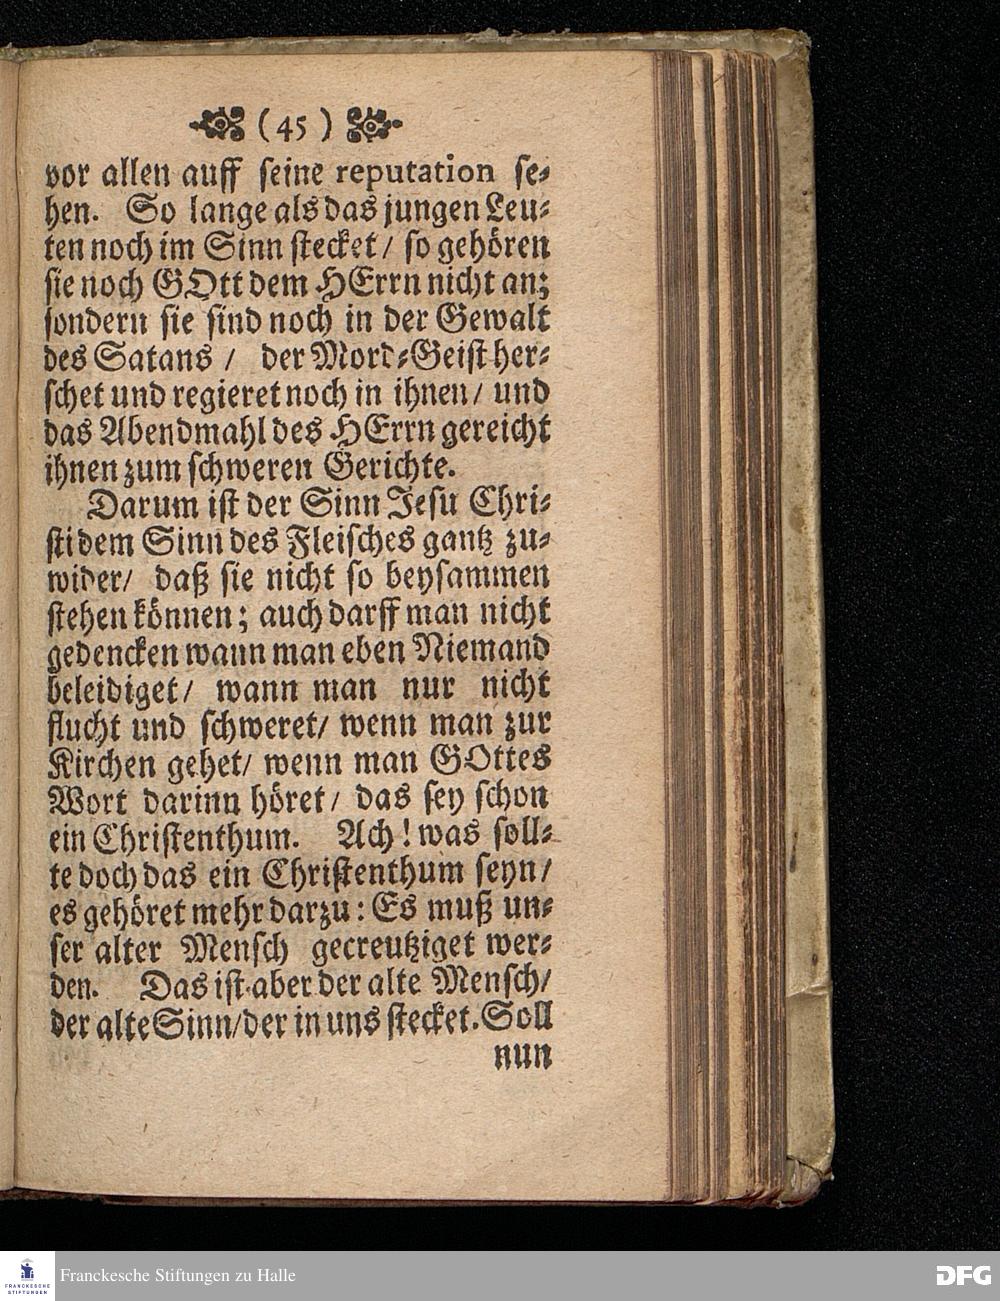 ( 45 )
vor allen auff seine reputation se-
hen. So lange als das jungen Leu-
ten noch im Sinn stecket / so gehören
sie noch GOtt dem HErrn nicht an;
sondern sie sind noch in der Gewalt
des Satans / der Mord-Geist her-
schet und regieret noch in ihnen / und
das Abendmahl des HErrn gereicht
ihnen zum schweren Gerichte.
Darum ist der Sinn Jesu Chri-
sti dem Sinn des Fleisches gantz zu-
wider / daß sie nicht so beysammen
stehen können; auch darff man nicht
gedencken wann man eben Niemand
beleidiget / wann man nur nicht
flucht und schweret / wenn man zur
Kirchen gehet / wenn man GOttes
Wort darinn höret / das sey schon
ein Christenthum. Ach! was soll-
te doch das ein Christenthum seyn /
es gehöret mehr darzu: Es muß un-
ser alter Mensch gecreutziget wer-
den. Das ist aber der alte Mensch /
der alte Sinn / der in uns stecket. Soll
nun
FRANCKESCHE STIFTUNGEN
Franckesche Stiftungen zu Halle
DFG